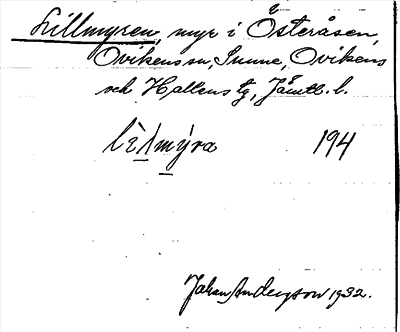 Lillmyren, myr i Österåsen,
Ovikens sn, Sunne, Ovikens
och Hallens tg, Jämtl. l.
lìlmýra 194
Johan Anderson 1932.